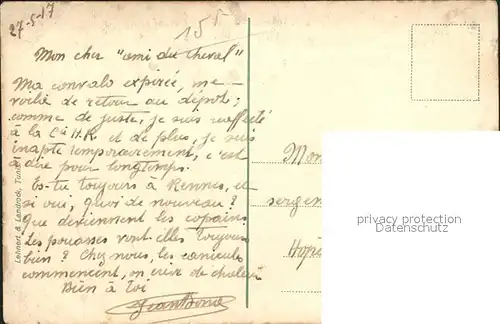 27-5-17
15 F
Mon cher "ami du cheval"
Ma convalo expirée, me
voilà de retour au dépôt ;
comme de juste, je suis réaffecté
à la Cie H.R. et de plus, je suis
inapte temporairement, c'est
à dire pour longtemps.
Es-tu toujours à Rennes, et
si oui, quoi de nouveau ?
Que deviennent les copains.
Les vont elles toujours
bien ? Chez nous, les canicules
commencent, on crève de chaleur
Bien à toi
Lehnert & Landrock, Tunis
Mon
sergen
Hôpi
privacy protection
Datenschutz